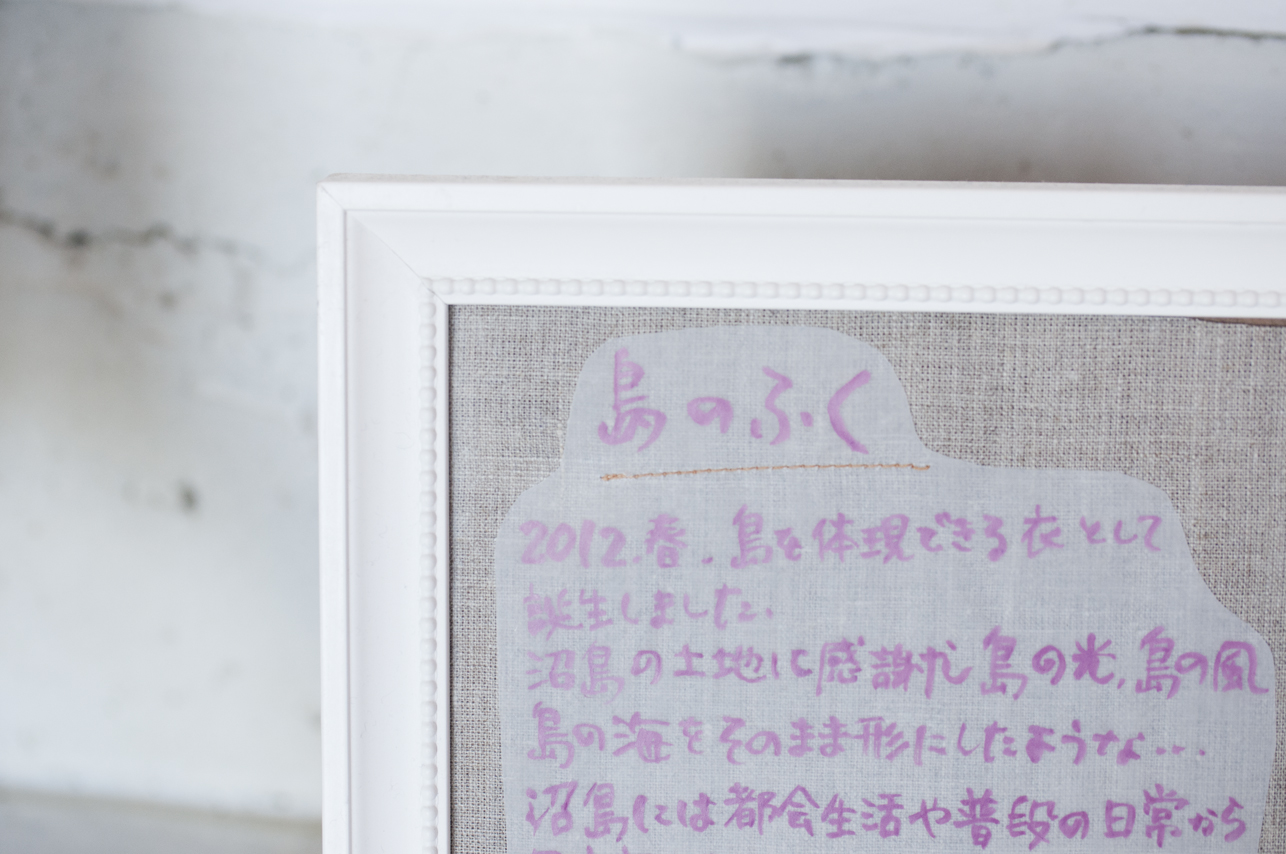 島のふく
2012.春.島を体現できる衣として
誕生しました.
沼島の土地に感謝し島の光,島の風
島の海をそのまま形にしたような…
沼島には都会生活や普段の日常から